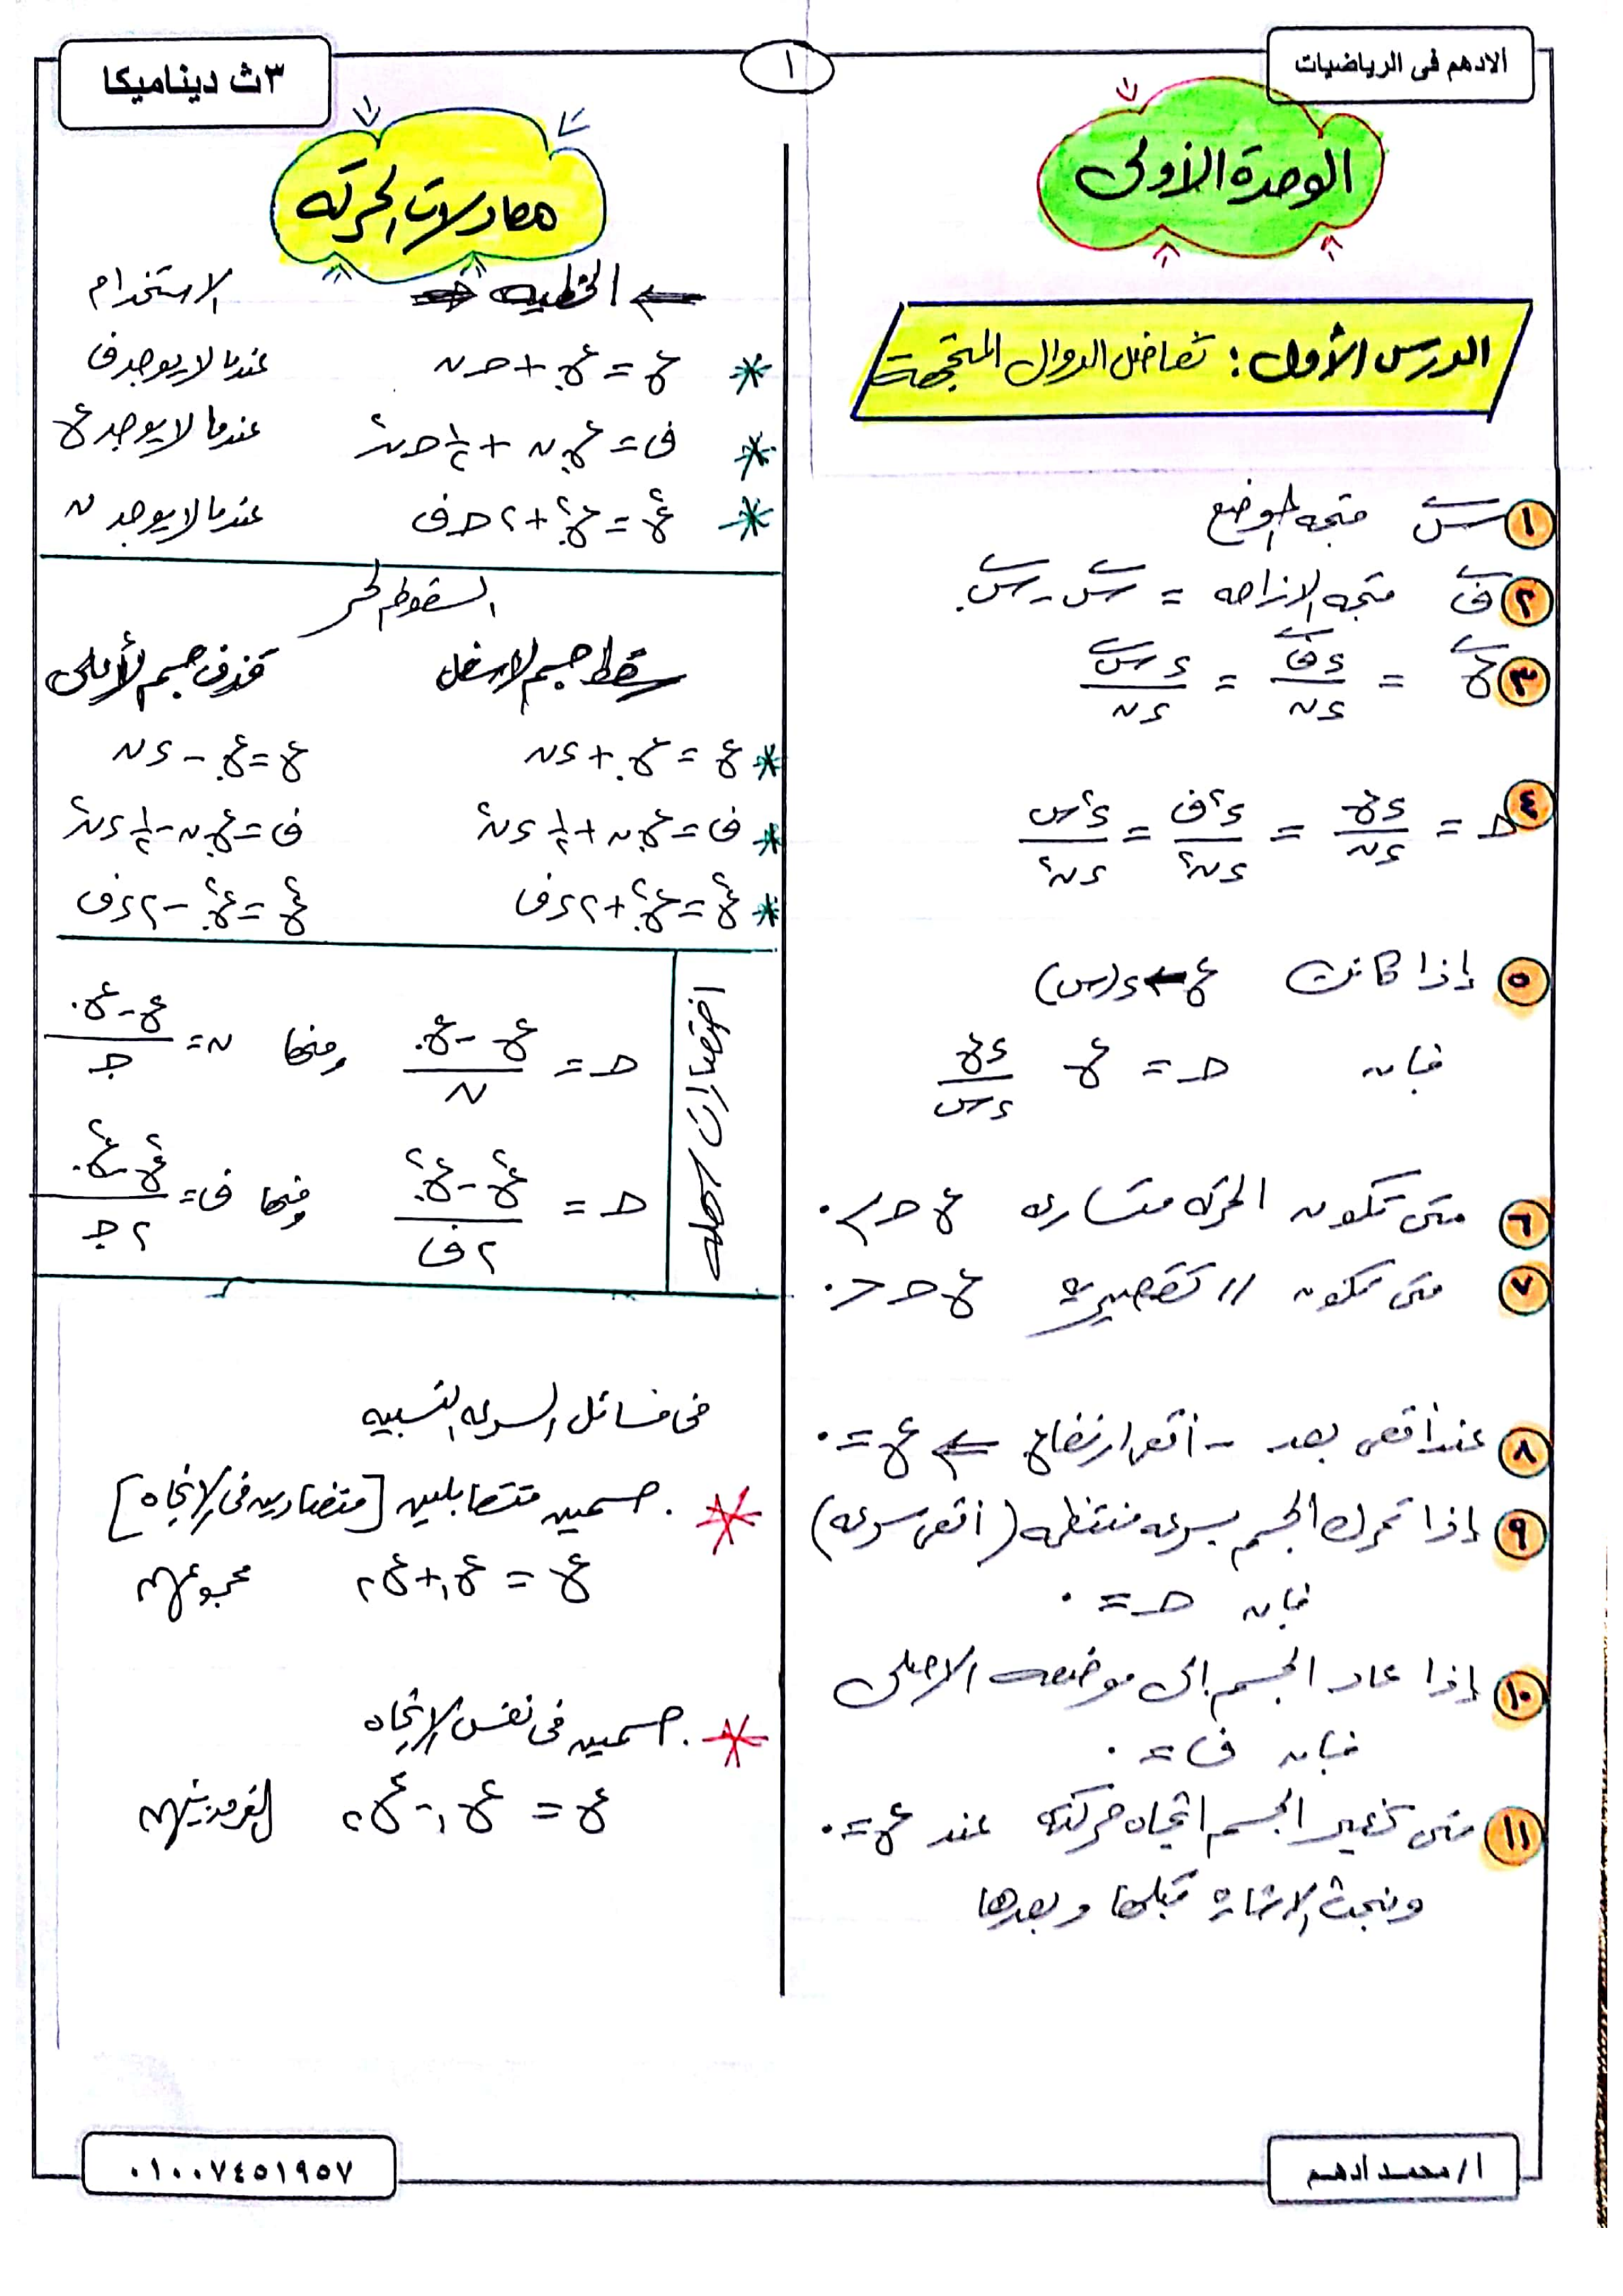 الادهم فى الرياضيات
١
٣ث ديناميكا
الوحدة الأولى
الدرس الأول : تفاضل الدوال المتجهة
١ س متجه الوضع
٢ ف متجه الازاحه = س - س.
٣ ع = ءف/ءن = ءس/ءن
٤ حـ = ءع/ءن = ء²ف/ءن² = ء²س/ءن²
٥ إذا كانت ع ← د(س)
فإن حـ = ع ءع/ءس
٦ متى تكون الحركه متسارعه ع حـ > ٠
٧ متى تكون // تقصيرية ع حـ < ٠
٨ عند أقصى بعد - أقصى ارتفاع ⇐ ع = ٠
٩ إذا تحرك الجسم بسرعه منتظمه (أقصى سرعه)
فإن حـ = ٠
١٠ إذا عاد الجسم إلى موضعه الاصلى
فإن ف = ٠
١١ متى يغير الجسم اتجاه حركته عند ع = ٠
ونبحث الاشارة قبلها وبعدها
معادلات الحركه
⇐ الخطيه الاستخدام
* ع = ع. + حـ ن عندما لا يوجد ف
* ف = ع. ن + ١/٢ حـ ن² عندما لا يوجد ع
* ع² = ع.² + ٢ حـ ف عندما لا يوجد ن
السقوط الحر
سقط جسم لاسفل قذف جسم لأعلى
* ع = ع. + ءن ع = ع. - ءن
* ف = ع. ن + ١/٢ ءن² ف = ع. ن - ١/٢ ءن²
* ع² = ع.² + ٢ءف ع² = ع.² - ٢ءف
اختصارات سهله
حـ = ع - ع./ن ومنها ن = ع - ع./حـ
حـ = ع² - ع.²/٢ف ومنها ف = ع² - ع.²/٢حـ
فى مسائل السرعه النسبيه
* جسمين متقابلين [متضادين فى الإتجاه]
ع = ع١ + ع٢ مجموعهم
* جسمين فى نفس الإتجاه
ع = ع١ - ع٢ الفرق بينهم
أ/محمد أدهم
٠١٠٠٧٤٥١٩٥٧